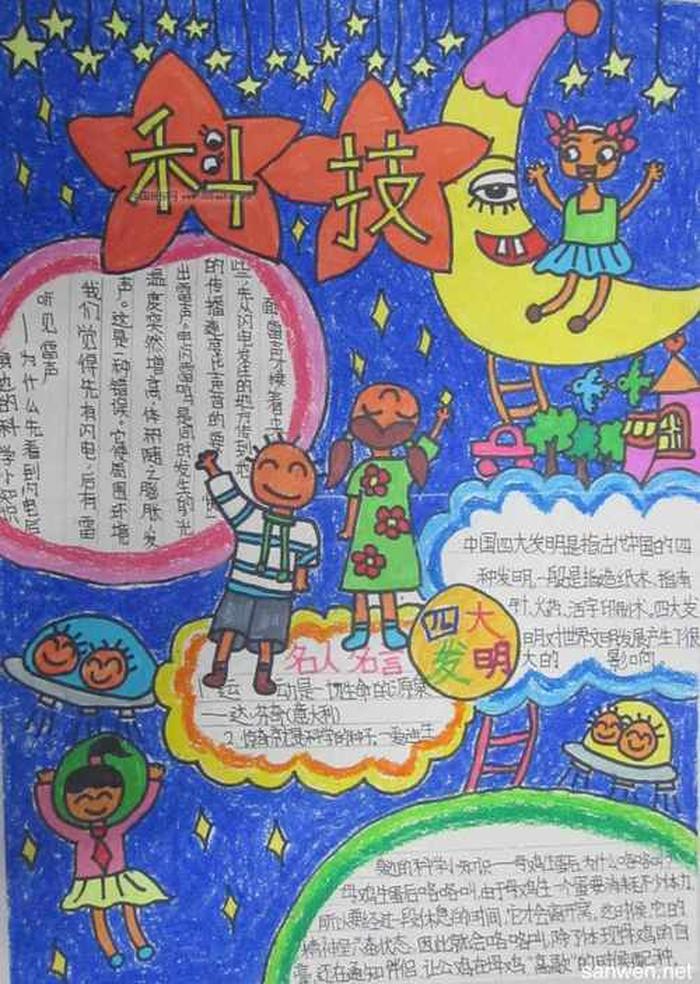 科技
听见雷声
——为什么先看到闪电后
我们觉得先有闪电,后有雷
声。这是一种错误。它使周围环境
温度突然增高,体积随之膨胀,发
出雷声。电闪雷鸣是同时发生的,光
的传播速度比声音的要
些,先从闪电发生的地方传到
面,雷声才接着
中国四大发明是指古代中国的四
种发明,一般是指造纸术、指南
针、火药、活字印刷术。四大发
明对世界文明发展产生了很
大的 影响
四大发明
名人名言
1. 运动是一切生命的源泉
——达·芬奇(意大利)
2. 惊奇就是科学的种子。—爱迪生
身边的科学小知识——母鸡生蛋后为什么咯咯叫?
母鸡生蛋后咯咯叫,由于母鸡生一个蛋要消耗不少体力
所以要经过一段休息的时间,它才会离开窝。这时候,它的
精神呈亢奋状态,因此就会咯咯叫,除了体现母鸡的自
豪,还在通知伴侣,让公鸡在母鸡“高歌”的时候配种。
sanwen.net